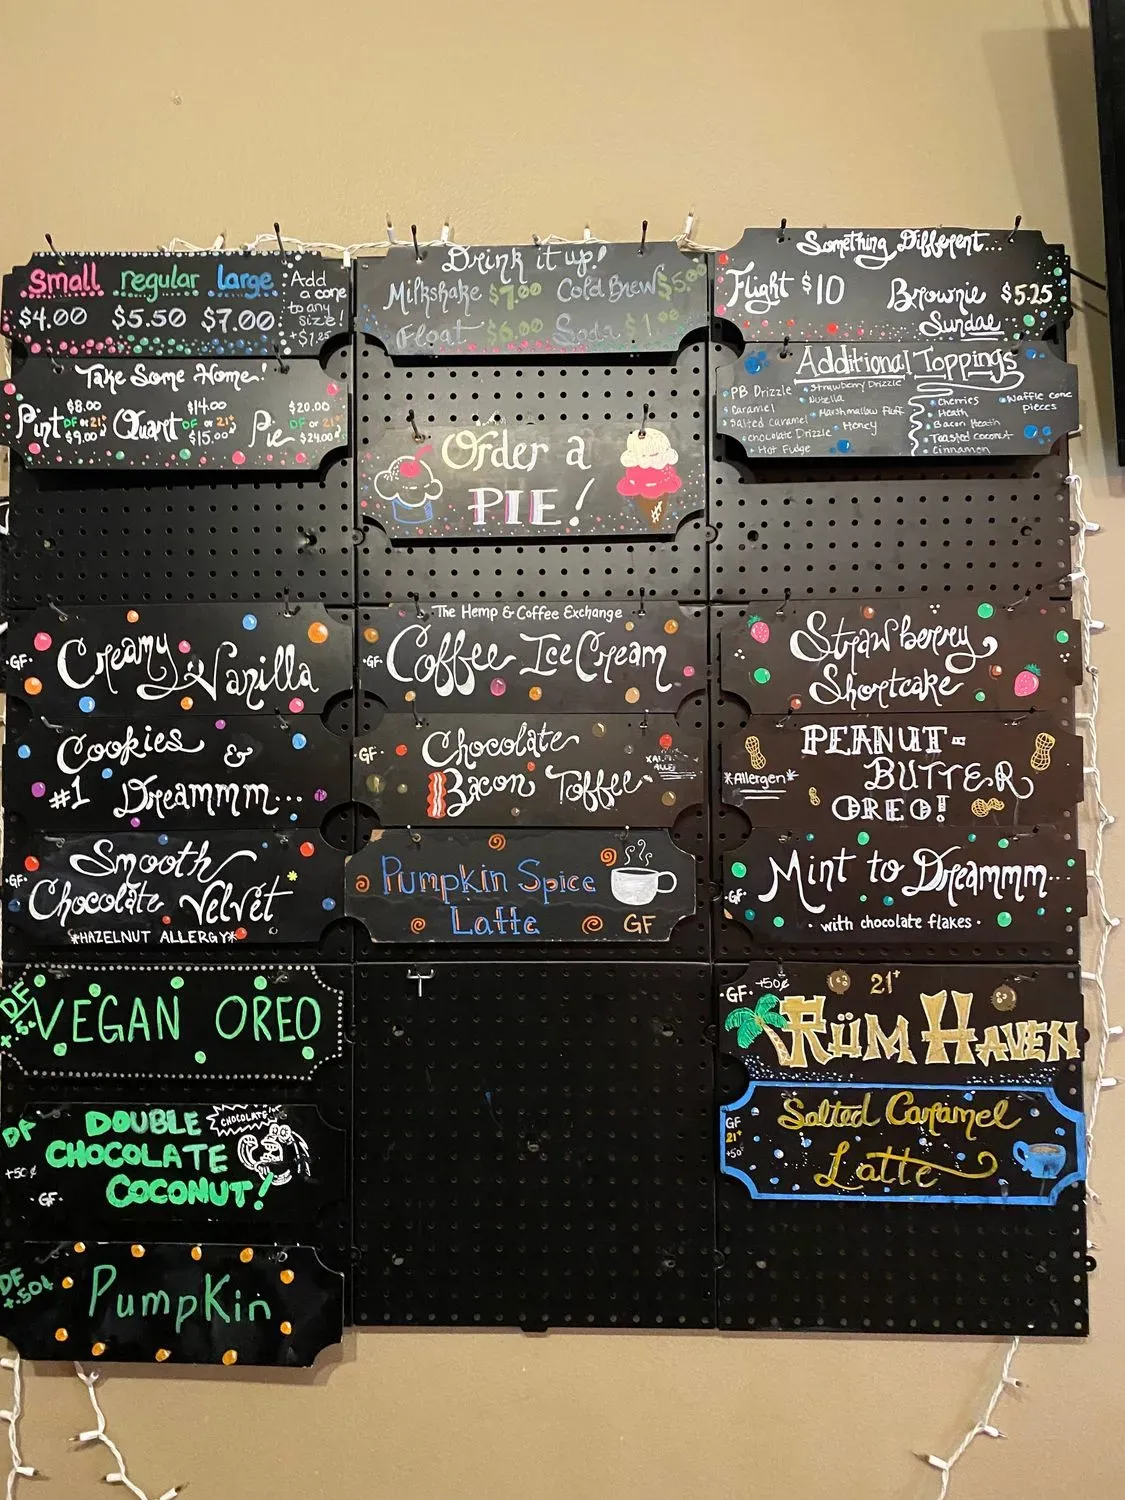 Small regular large
$4.00 $5.50 $7.00
Add
a cone
to any
size!
+$1.25
Take Some Home!
Pint Quart Pie
$8.00 $14.00 $20.00
DF or 21+ DF or 21+ DF or 21+
$9.00 $15.00 $24.00
Drink it up!
Milkshake $7.00 Cold Brew $5.00
Float $6.00 Soda $1.00
Order a
PIE!
Something Different...
Flight $10 Brownie $5.25
Sundae
Additional Toppings
PB Drizzle
Caramel
Salted Caramel
Chocolate Drizzle
Hot Fudge
Strawberry Drizzle
Nutella
Marshmallow Fluff
Honey
Cherries
Heath
Bacon Heath
Toasted coconut
Cinnamon
Waffle cone
pieces
·GF· Creamy Vanilla
Cookies &
#1 Dreammm...
·GF· Smooth
Chocolate Velvet
*HAZELNUT ALLERGY*
The Hemp & Coffee Exchange
·GF· Coffee Ice Cream
GF· Chocolate
Bacon Toffee
Pumpkin Spice
Latte GF
Strawberry
Shortcake
PEANUT-
BUTTER
OREO!
*Allergen*
·GF· Mint to Dreammm...
· with chocolate flakes ·
DF
VEGAN OREO
DF DOUBLE
CHOCOLATE
COCONUT!
CHOCOLATE
+50¢
·GF·
DF
+.50¢
Pumpkin
·GF· +50¢ 21+
RÜM HAVEN
GF
21+
+50¢
Salted Caramel
Latte